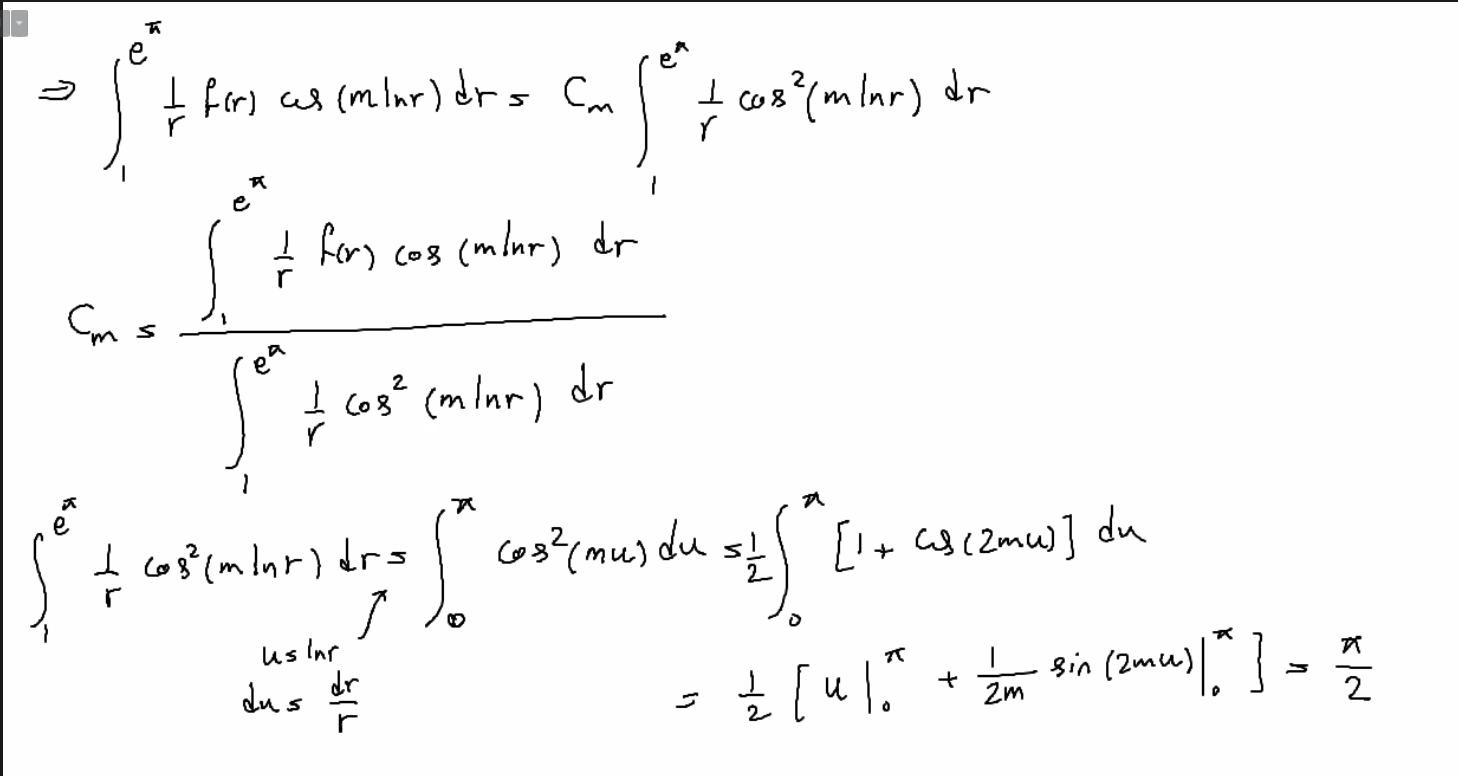 ⇒ ∫₁^{e^π} 1/r f(r) cos(m ln r) dr = C_m ∫₁^{e^π} 1/r cos²(m ln r) dr
C_m = ∫₁^{e^π} 1/r f(r) cos(m ln r) dr / ∫₁^{e^π} 1/r cos²(m ln r) dr
∫₁^{e^π} 1/r cos²(m ln r) dr = ∫₀^π cos²(mu) du = 1/2 ∫₀^π [1 + cos(2mu)] du
u = ln r
du = dr/r
= 1/2 [u|₀^π + 1/2m sin(2mu)|₀^π] = π/2